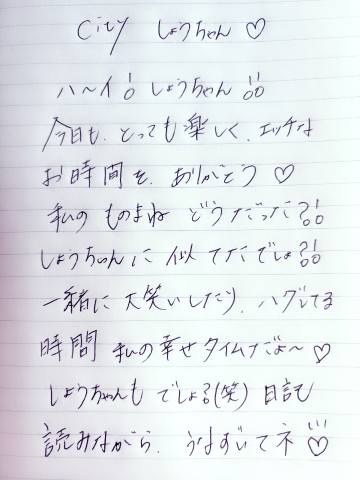 City しょうちゃん♡
ハ〜イ!。しょうちゃん!!
今日も、とっても楽しく、エッチな
お時間を、ありがとう♡
私のものまねどうだった?!
しょうちゃんに似てたでしょ?!
一緒に大笑いしたり、ハグしてる
時間私の幸せタイムだよ〜♡
しょうちゃんもでしょ?(笑)日記
読みながら、うなずいてネ♡